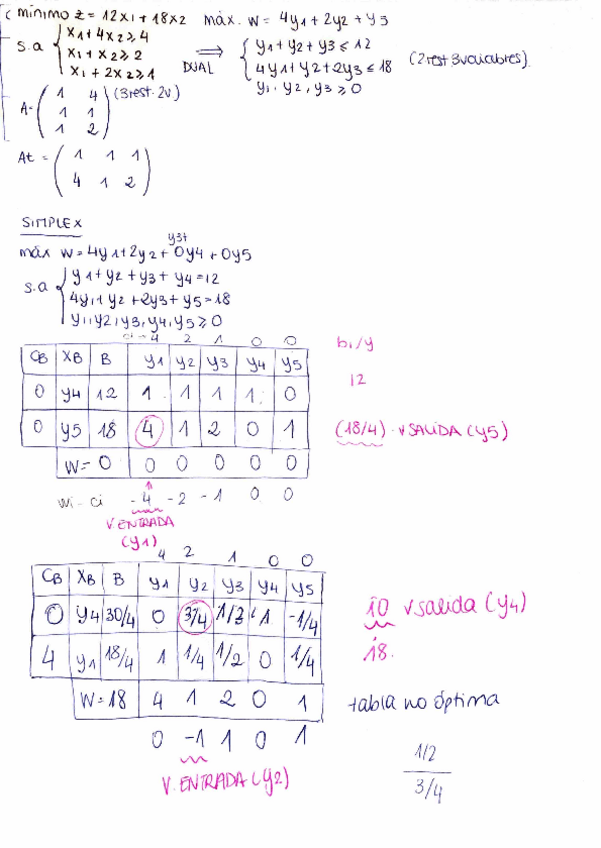 mínimo z = 12x1 + 18x2 máx. w = 4y1 + 2y2 + y3
s.a { x1 + 4x2 ≥ 4
x1 + x2 ≥ 2
x1 + 2x2 ≥ 1
⟹ DUAL
{ y1 + y2 + y3 ≤ 12
4y1 + y2 + 2y3 ≤ 18
y1, y2, y3 ≥ 0
(2rest. 3variables)
A = ( 1 4
1 1
1 2 )
(3rest. 2v)
At = ( 1 1 1
4 1 2 )
SIMPLEX
y3+
máx w = 4y1 + 2y2 + 0y4 + 0y5
s.a { y1 + y2 + y3 + y4 = 12
4y1 + y2 + 2y3 + y5 = 18
y1, y2, y3, y4, y5 ≥ 0
ci → 4 2 1 0 0
CB XB B y1 y2 y3 y4 y5 bi/y
0 y4 12 1 1 1 1 0 12
0 y5 18 4 1 2 0 1 (18/4) → V SALIDA (y5)
W = 0 0 0 0 0 0
wi - ci -4 -2 -1 0 0
V. ENTRADA
(y1)
4 2 1 0 0
CB XB B y1 y2 y3 y4 y5
0 y4 30/4 0 3/4 1/3 1 -1/4 10 v salida (y4)
4 y1 18/4 1 1/4 1/2 0 1/4 18.
W = 18 4 1 2 0 1 tabla no óptima
0 -1 1 0 1
V. ENTRADA (y2)
1/2
3/4